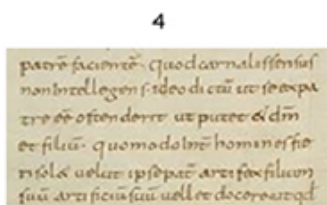 4
patrē facientē. quod carnalis sensus
non intellegens. ideo dictū ut se ex pa
tre eē ostenderet ut putet & dm̄
et filiū. quomodo int̄ homines fie
ri sol& velut ipse pat̄ artifex filium
suū artificiū suū vellet docere ut qd̄